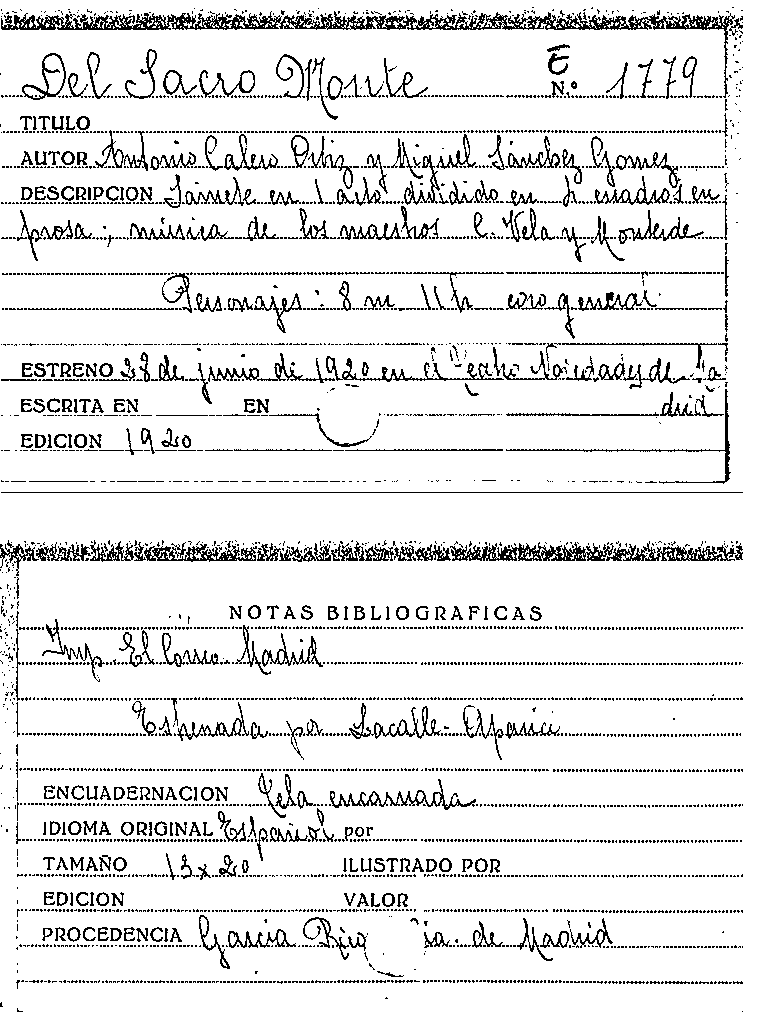 Del Sacro Monte E N.º 1779
TITULO
AUTOR Antonio Calero Ortiz y Miguel Sánchez Gomez
DESCRIPCION Sainete en 1 acto dividido en cuadros en
prosa; música de los maestros C. Vela y Monterde
Personajes: 8 m. 11 h coro general
ESTRENO 28 de junio de 1920 en el Teatro Novedades de Ma
ESCRITA EN EN drid
EDICION 1920
NOTAS BIBLIOGRAFICAS
Imp. El Correo Madrid
Estrenada por Lacalle-Aparici
ENCUADERNACION Tela encarnada
IDIOMA ORIGINAL Español por
TAMAÑO 13 x 20 ILUSTRADO POR
EDICION VALOR
PROCEDENCIA Garcia Rico ia. de Madrid